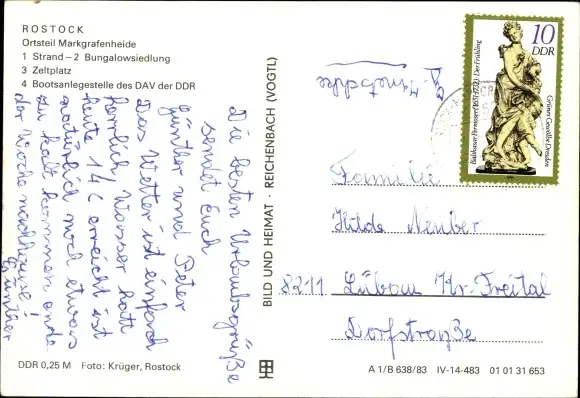 ROSTOCK
Ortsteil Markgrafenheide
1 Strand – 2 Bungalowsiedlung
3 Zeltplatz
4 Bootsanlegestelle des DAV der DDR
Die besten Urlaubsgrüße
sendet Euch
Günther und Peter
Das Wetter ist einfach
herrlich, Wasser hatt
heute 14 C erreicht ist
natürlich noch etwas
zu kalt kommen ende
der Woche nachhause!
Günther
DDR 0,25 M Foto: Krüger, Rostock
BILD UND HEIMAT · REICHENBACH (VOGTL)
10
DDR
Balthasar Permoser (1651-1732): Der Frühling
Grünes Gewölbe Dresden
Familie
Hilde Neuber
8211 Lübau Kr. Freital
Dorfstraße
A 1/B 638/83 IV-14-483 01 01 31 653